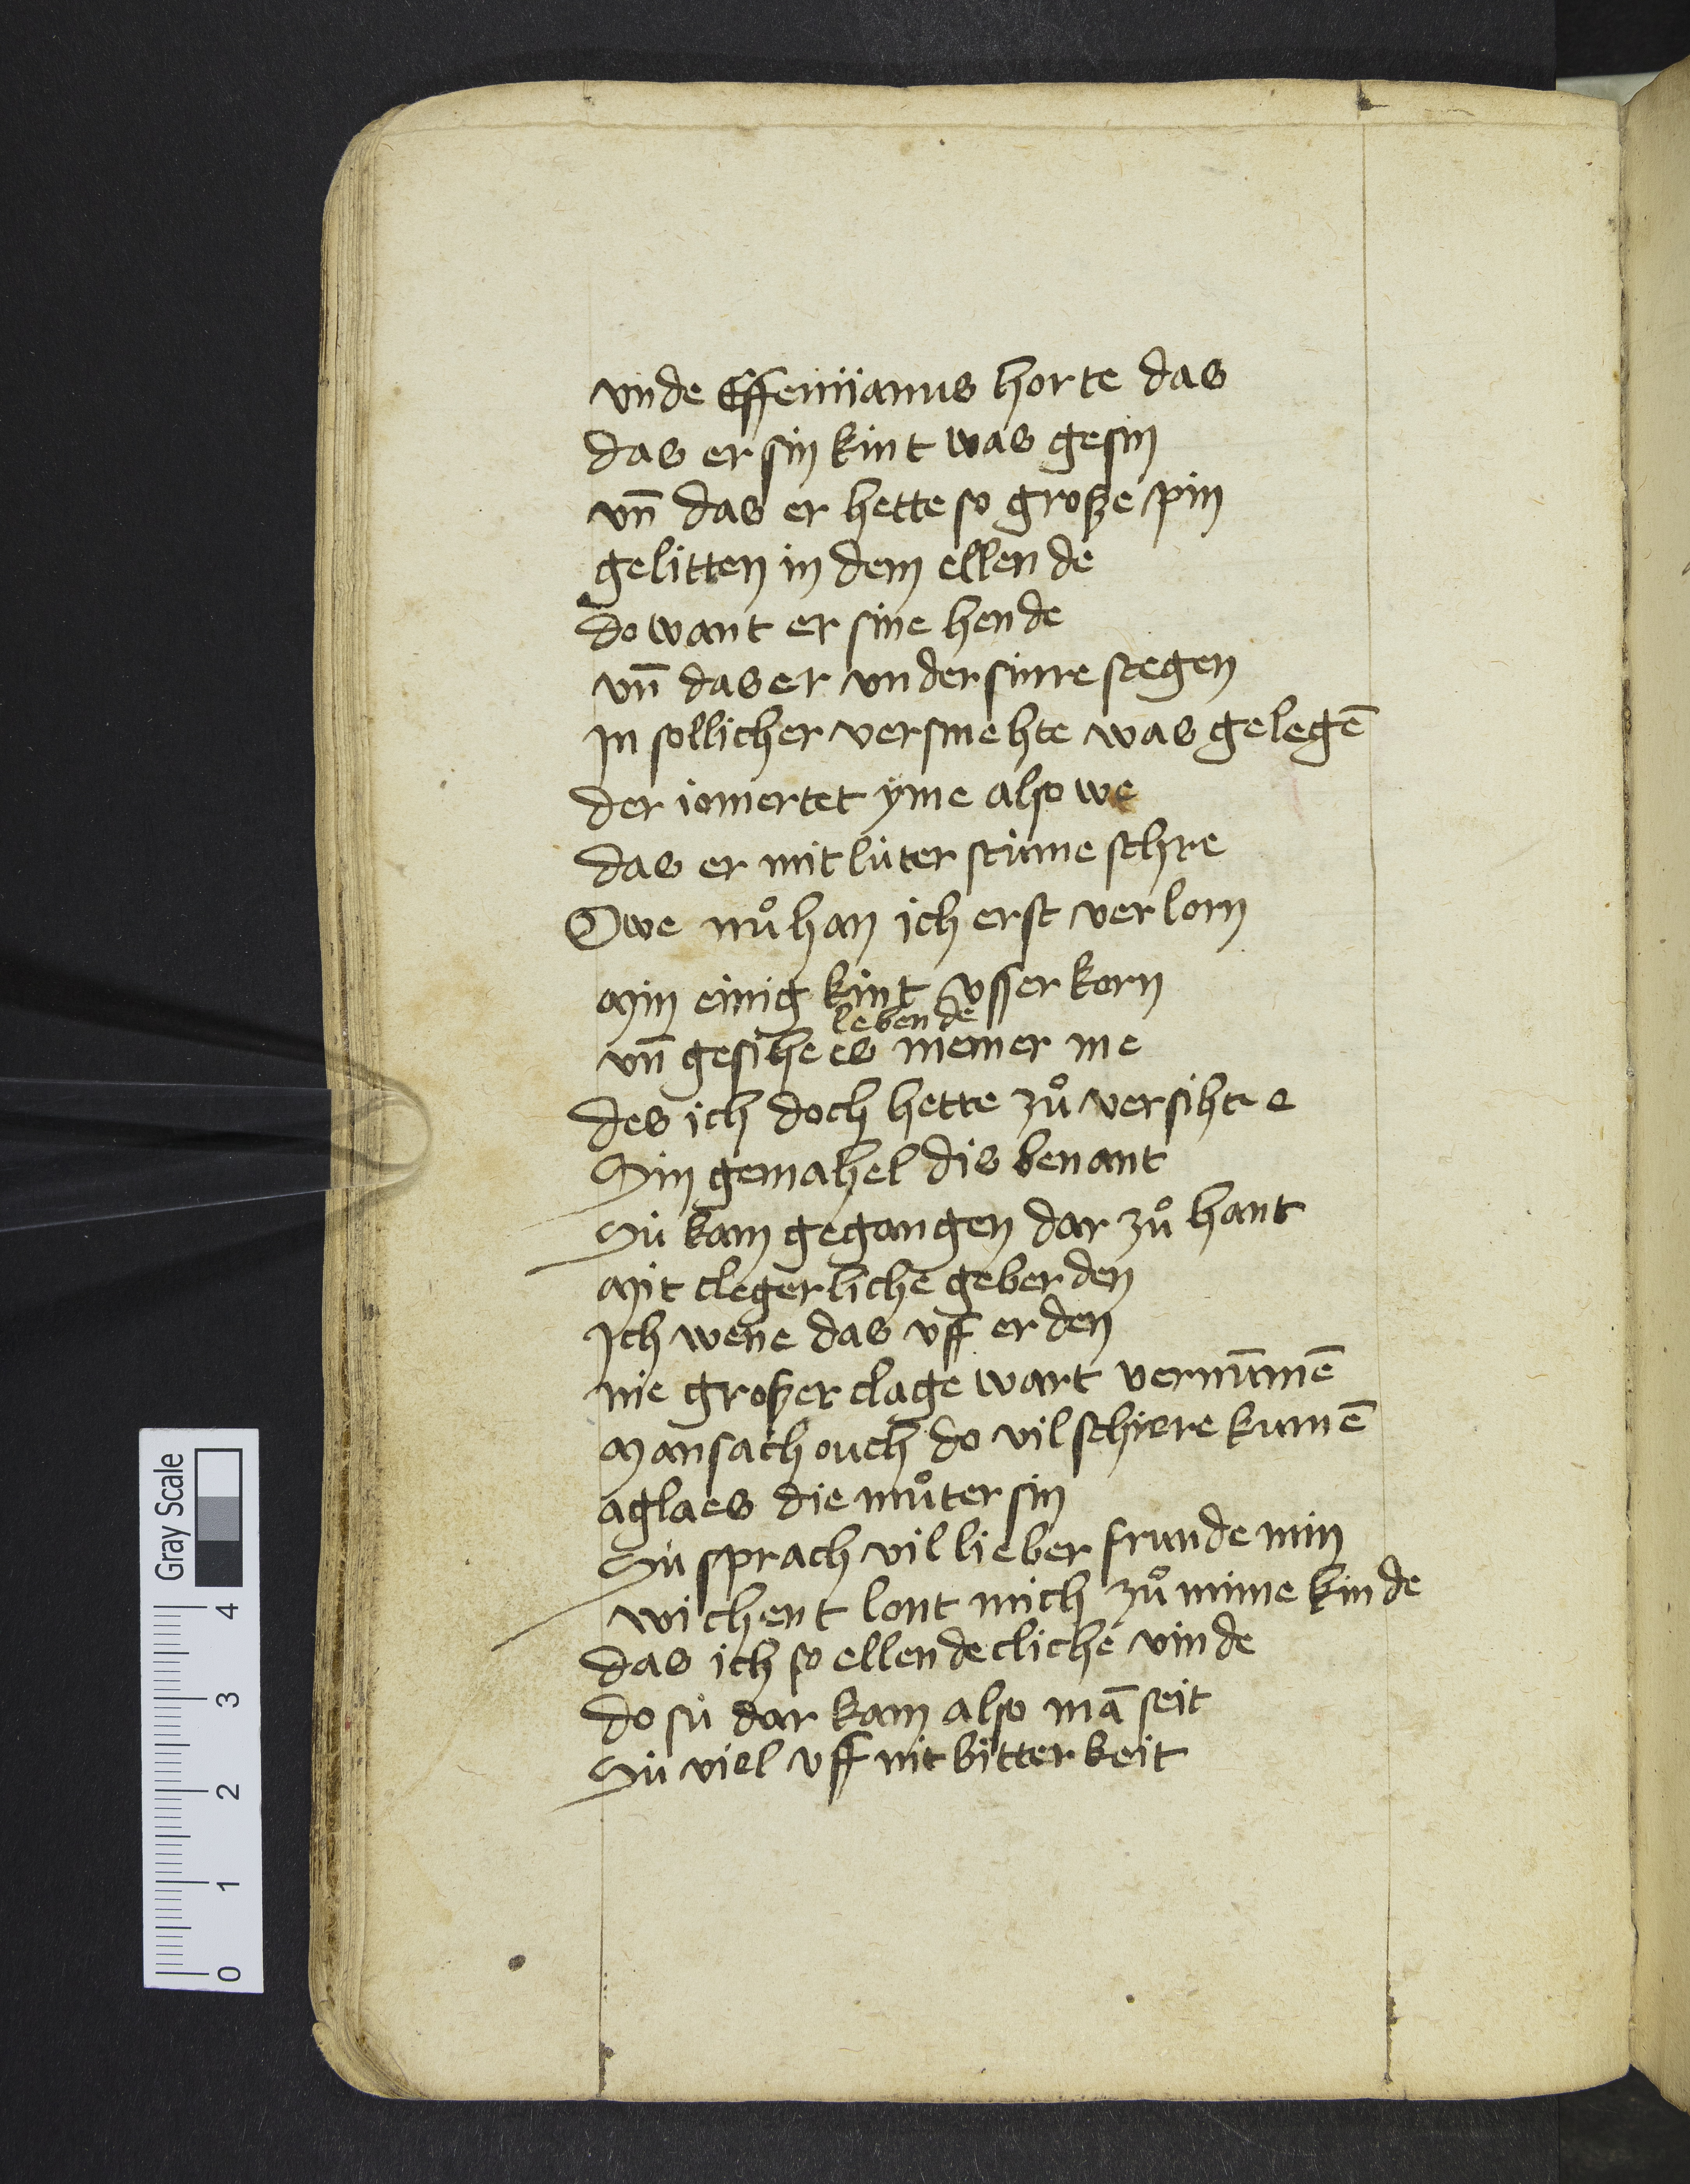 vnde Effemianus horte das
das er sin kint was gesin
vn̄ das er hette so große pin
gelitten in dem ellende
do want er sine hende
vn̄ das er vnder sinre stegen
Jn sollicher versmehte was gelegē
der iomertet yme also we
das er mit luter stimme schre
Owe nuͦ han ich erst verlorn
Min einig kint vsserkorn
lebende
vn̄ gesihe es niemer me
des ich doch hette zuͦ versiht e
Sin gemahel dis benant
Sü kam gegangen dar zuͦ hant
Mit clegerliche geberden
Jch wene das vff erden
nie großer clage wart vernūmē
Man sach ouch do vil schiere kumē
aglaes die muͦter sin
Sü sprach vil lieber frunde min
wichent lont mich zuͦ mime kinde
das ich so ellendecliche vinde
do sü dar kam also mā seit
Sü viel vff mit bitterkeit
Gray Scale
4
3
2
1
0